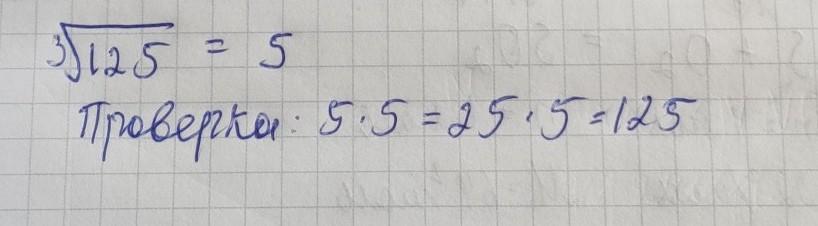 ∛125 = 5
Проверка: 5·5=25·5=125